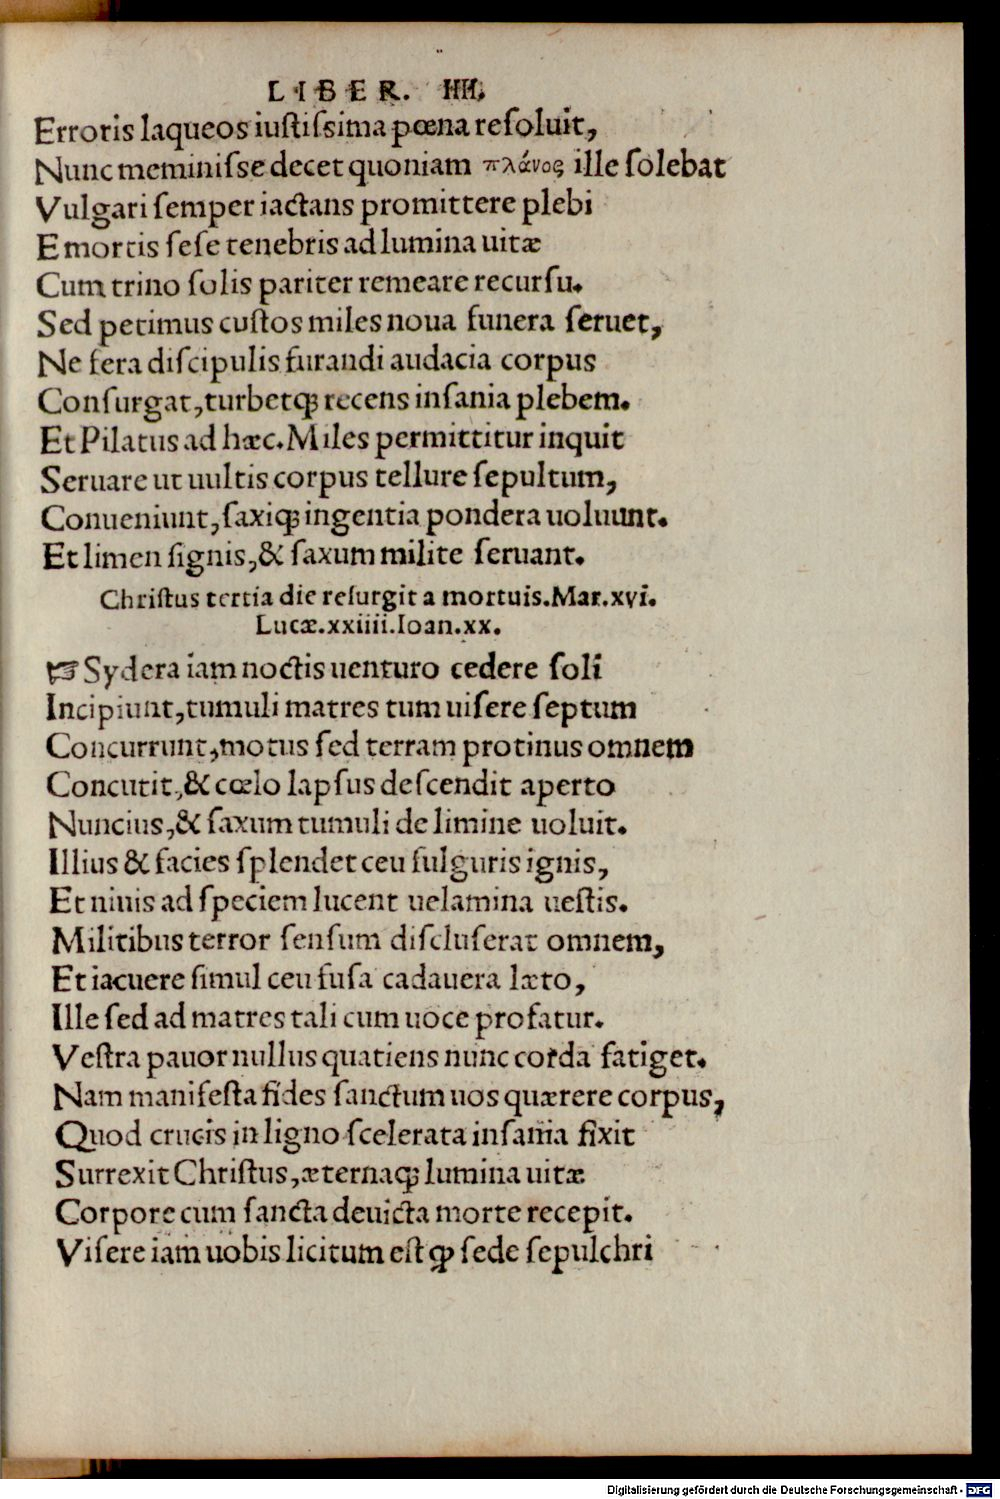 LIBER. IIII.
Erroris laqueos iustissima pœna resoluit,
Nunc meminisse decet quoniam πλάνος ille solebat
Vulgari semper iactans promittere plebi
E mortis sese tenebris ad lumina uitæ
Cum trino solis pariter remeare recursu.
Sed petimus custos miles noua funera seruet,
Ne fera discipulis furandi audacia corpus
Consurgat, turbetq; recens insania plebem.
Et Pilatus ad hæc. Miles permittitur inquit
Seruare ut uultis corpus tellure sepultum,
Conueniunt, saxiq; ingentia pondera uoluunt.
Et limen signis, & saxum milite seruant.
Christus tertia die resurgit a mortuis. Mar. xvi.
Lucæ. xxiiii. Ioan. xx.
☞ Sydera iam noctis uenturo cedere soli
Incipiunt, tumuli matres tum uisere septum
Concurrunt, motus sed terram protinus omnem
Concutit, & cœlo lapsus descendit aperto
Nuncius, & saxum tumuli de limine uoluit.
Illius & facies splendet ceu fulguris ignis,
Et niuis ad speciem lucent uelamina uestis.
Militibus terror sensum discluserat omnem,
Et iacuere simul ceu fusa cadauera læto,
Ille sed ad matres tali cum uoce profatur.
Vestra pauor nullus quatiens nunc corda fatiget.
Nam manifesta fides sanctum uos quærere corpus,
Quod crucis in ligno scelerata insania fixit
Surrexit Christus, æternaq; lumina uitæ
Corpore cum sancta deuicta morte recepit.
Visere iam uobis licitum est ꝙ sede sepulchri
Digitalisierung gefördert durch die Deutsche Forschungsgemeinschaft - DFG